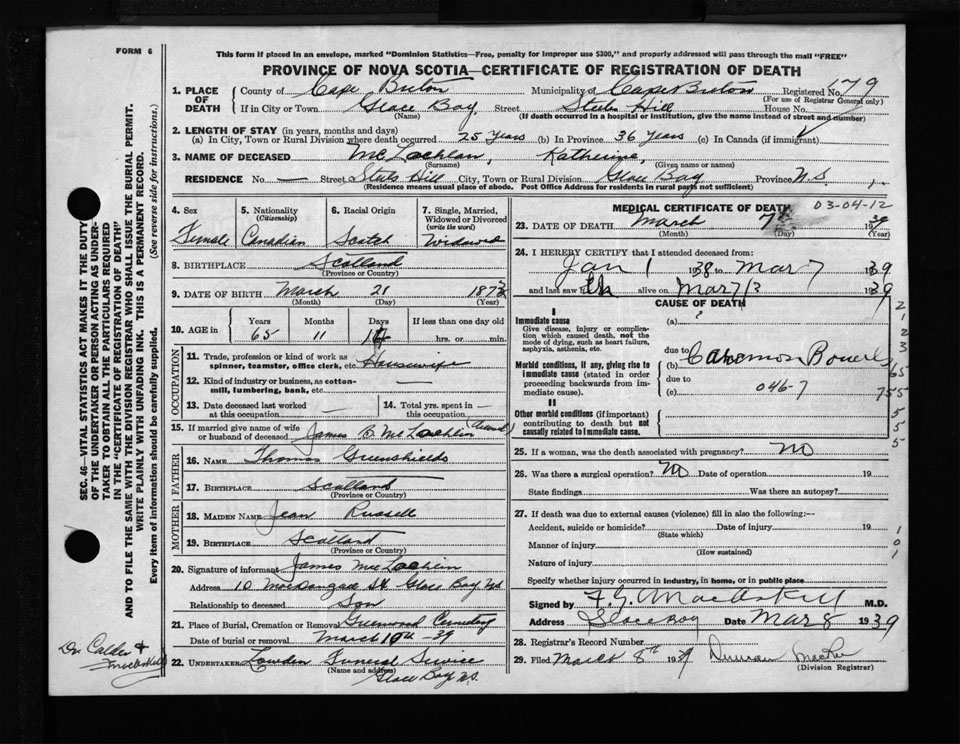 FORM 6
This form if placed in an envelope, marked "Dominion Statistics—Free, penalty for improper use $300," and properly addressed will pass through the mail "FREE"
PROVINCE OF NOVA SCOTIA—CERTIFICATE OF REGISTRATION OF DEATH
1. PLACE OF DEATH
County of Cape Breton Municipality of Cape Breton Registered No. 179
(For use of Registrar General only)
If in City or Town Glace Bay. Street Steeles Hill House No.
(Name) (If death occurred in a hospital or institution, give the name instead of street and number)
2. LENGTH OF STAY (in years, months and days)
(a) In City, Town or Rural Division where death occurred 25 Years (b) In Province 36 Years (c) In Canada (if immigrant)
3. NAME OF DECEASED McLachlan, Katherine,
(Surname) (Given name or names)
RESIDENCE No. — Street Steeles Hill City, Town or Rural Division Glace Bay Province N.S.
(Residence means usual place of abode. Post Office Address for residents in rural parts not sufficient)
4. Sex Female
5. Nationality (Citizenship) Canadian
6. Racial Origin Scotch
7. Single, Married, Widowed or Divorced (write the word) Widowed
8. BIRTHPLACE Scotland
(Province or Country)
9. DATE OF BIRTH March 21 187
(Month) (Day) (Year)
10. AGE in Years Months Days If less than one day old
65 11 hrs. or min.
OCCUPATION
11. Trade, profession or kind of work as spinner, teamster, office clerk, etc. Housewife
12. Kind of industry or business, as cotton-mill, lumbering, bank, etc. —
13. Date deceased last worked at this occupation —
14. Total yrs. spent in this occupation —
15. If married give name of wife or husband of deceased James B. McLachlin
FATHER
16. NAME Thomas Greenshields
17. BIRTHPLACE Scotland
(Province or Country)
MOTHER
18. MAIDEN NAME Jean Russell
19. BIRTHPLACE Scotland
(Province or Country)
20. Signature of informant James McLachlin
Address 10 MacDougall St. Glace Bay NS
Relationship to deceased Son
21. Place of Burial, Cremation or Removal Greenwood Cemetery
Date of burial or removal March 10th-39
22. UNDERTAKER Lowden Funeral Service
(Name and address)
Glace Bay NS.
MEDICAL CERTIFICATE OF DEATH 03-04-12
23. DATE OF DEATH March 7th 1939
(Month) (Day) (Year)
24. I HEREBY CERTIFY that I attended deceased from:
Jan 1 1938 to Mar 7 1939
and last saw h alive on Mar 7/3 1939
CAUSE OF DEATH
I
Immediate cause
Give disease, injury or complication which caused death, not the mode of dying, such as heart failure, asphyxia, asthenia, etc.
(a) ?
due to
Morbid conditions, if any, giving rise to immediate cause (stated in order proceeding backwards from immediate cause).
(b) Bowels
due to
(c) 046-7
II
Other morbid conditions (if important) contributing to death but not causally related to immediate cause.
25. If a woman, was the death associated with pregnancy? No
26. Was there a surgical operation? No Date of operation 19
State findings Was there an autopsy?
27. If death was due to external causes (violence) fill in also the following:—
Accident, suicide or homicide? Date of injury 19
(State which)
Manner of injury
(How sustained)
Nature of injury
Specify whether injury occurred in industry, in home, or in public place
Signed by MacAskill M.D.
Address Glace Bay Date Mar 8 1939
28. Registrar's Record Number
29. Filed March 8th 1939 Duncan
(Division Registrar)
SEC. 46—VITAL STATISTICS ACT MAKES IT THE DUTY
OF THE UNDERTAKER OR PERSON ACTING AS UNDER-
TAKER TO OBTAIN ALL THE PARTICULARS REQUIRED
IN THE "CERTIFICATE OF REGISTRATION OF DEATH"
AND TO FILE THE SAME WITH THE DIVISION REGISTRAR WHO SHALL ISSUE THE BURIAL PERMIT.
WRITE PLAINLY WITH UNFADING INK. THIS IS A PERMANENT RECORD.
Every item of information should be carefully supplied. (See reverse side for instructions.)
Dr Calder &